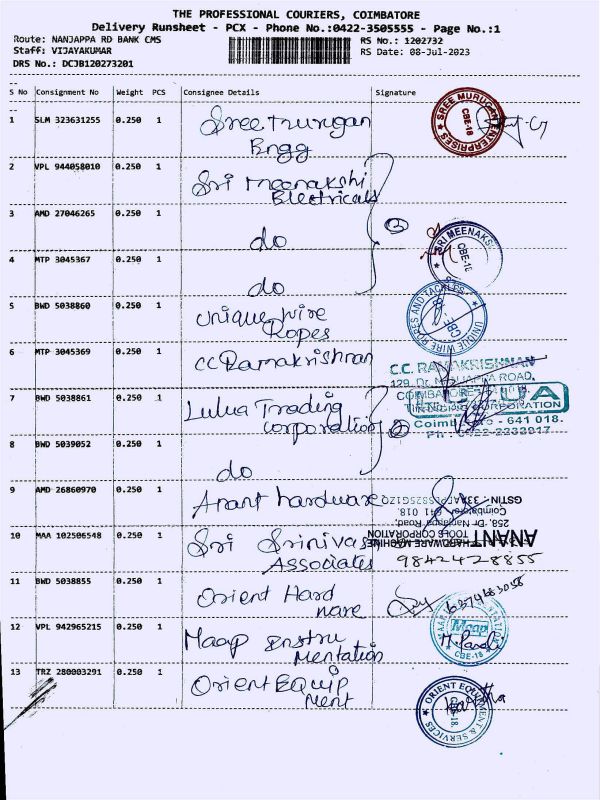 THE PROFESSIONAL COURIERS, COIMBATORE
Delivery Runsheet - PCX - Phone No.:0422-3505555 - Page No.:1
Route: NANJAPPA RD BANK CMS RS No.: 1202732
Staff: VIJAYAKUMAR RS Date: 08-Jul-2023
DRS No.: DCJB120273201
S No Consignment No Weight PCS Consignee Details Signature
1 SLM 323631255 0.250 1 Sree Murugan
Engg
SREE MURUGAN ENTERPRISES CBE-18
2 VPL 944058010 0.250 1 Sri Meenakshi
Electricals
3 AMD 27046265 0.250 1 do
3
SRI MEENAKSHI CBE-18
4 MTP 3045367 0.250 1 do
5 BWD 5038860 0.250 1 Unique Wire
Ropes
UNIQUE WIRE ROPES AND TACKLES CBE
6 MTP 3045369 0.250 1 CC Ramakrishnan
C.C. RAMAKRISHNAN
129, Dr. NANJAPPA ROAD,
COIMBATORE
7 BWD 5038861 0.250 1 Lulua Trading
Corporation
CORPORATION
Coimbatore - 641 018.
Ph : 0422-2333917
2
8 BWD 5039052 0.250 1 do
9 AMD 26860970 0.250 1 Anant hardware
GSTIN : 33
Coimbatore 641 018.
258, Dr Nanjappa Road,
TOOLS CORPORATION
HARDWARE MACHINE
ANANT
10 MAA 102506548 0.250 1 Sri Srinivas
Associates
9842428855
11 BWD 5038855 0.250 1 Orient Hard
ware
12 VPL 942965215 0.250 1 Maap Instru
mentation
Maap CBE-18
13 TRZ 280003291 0.250 1 Orient Equip
ment
ORIENT EQUIPMENT & SERVICES CBE-18.